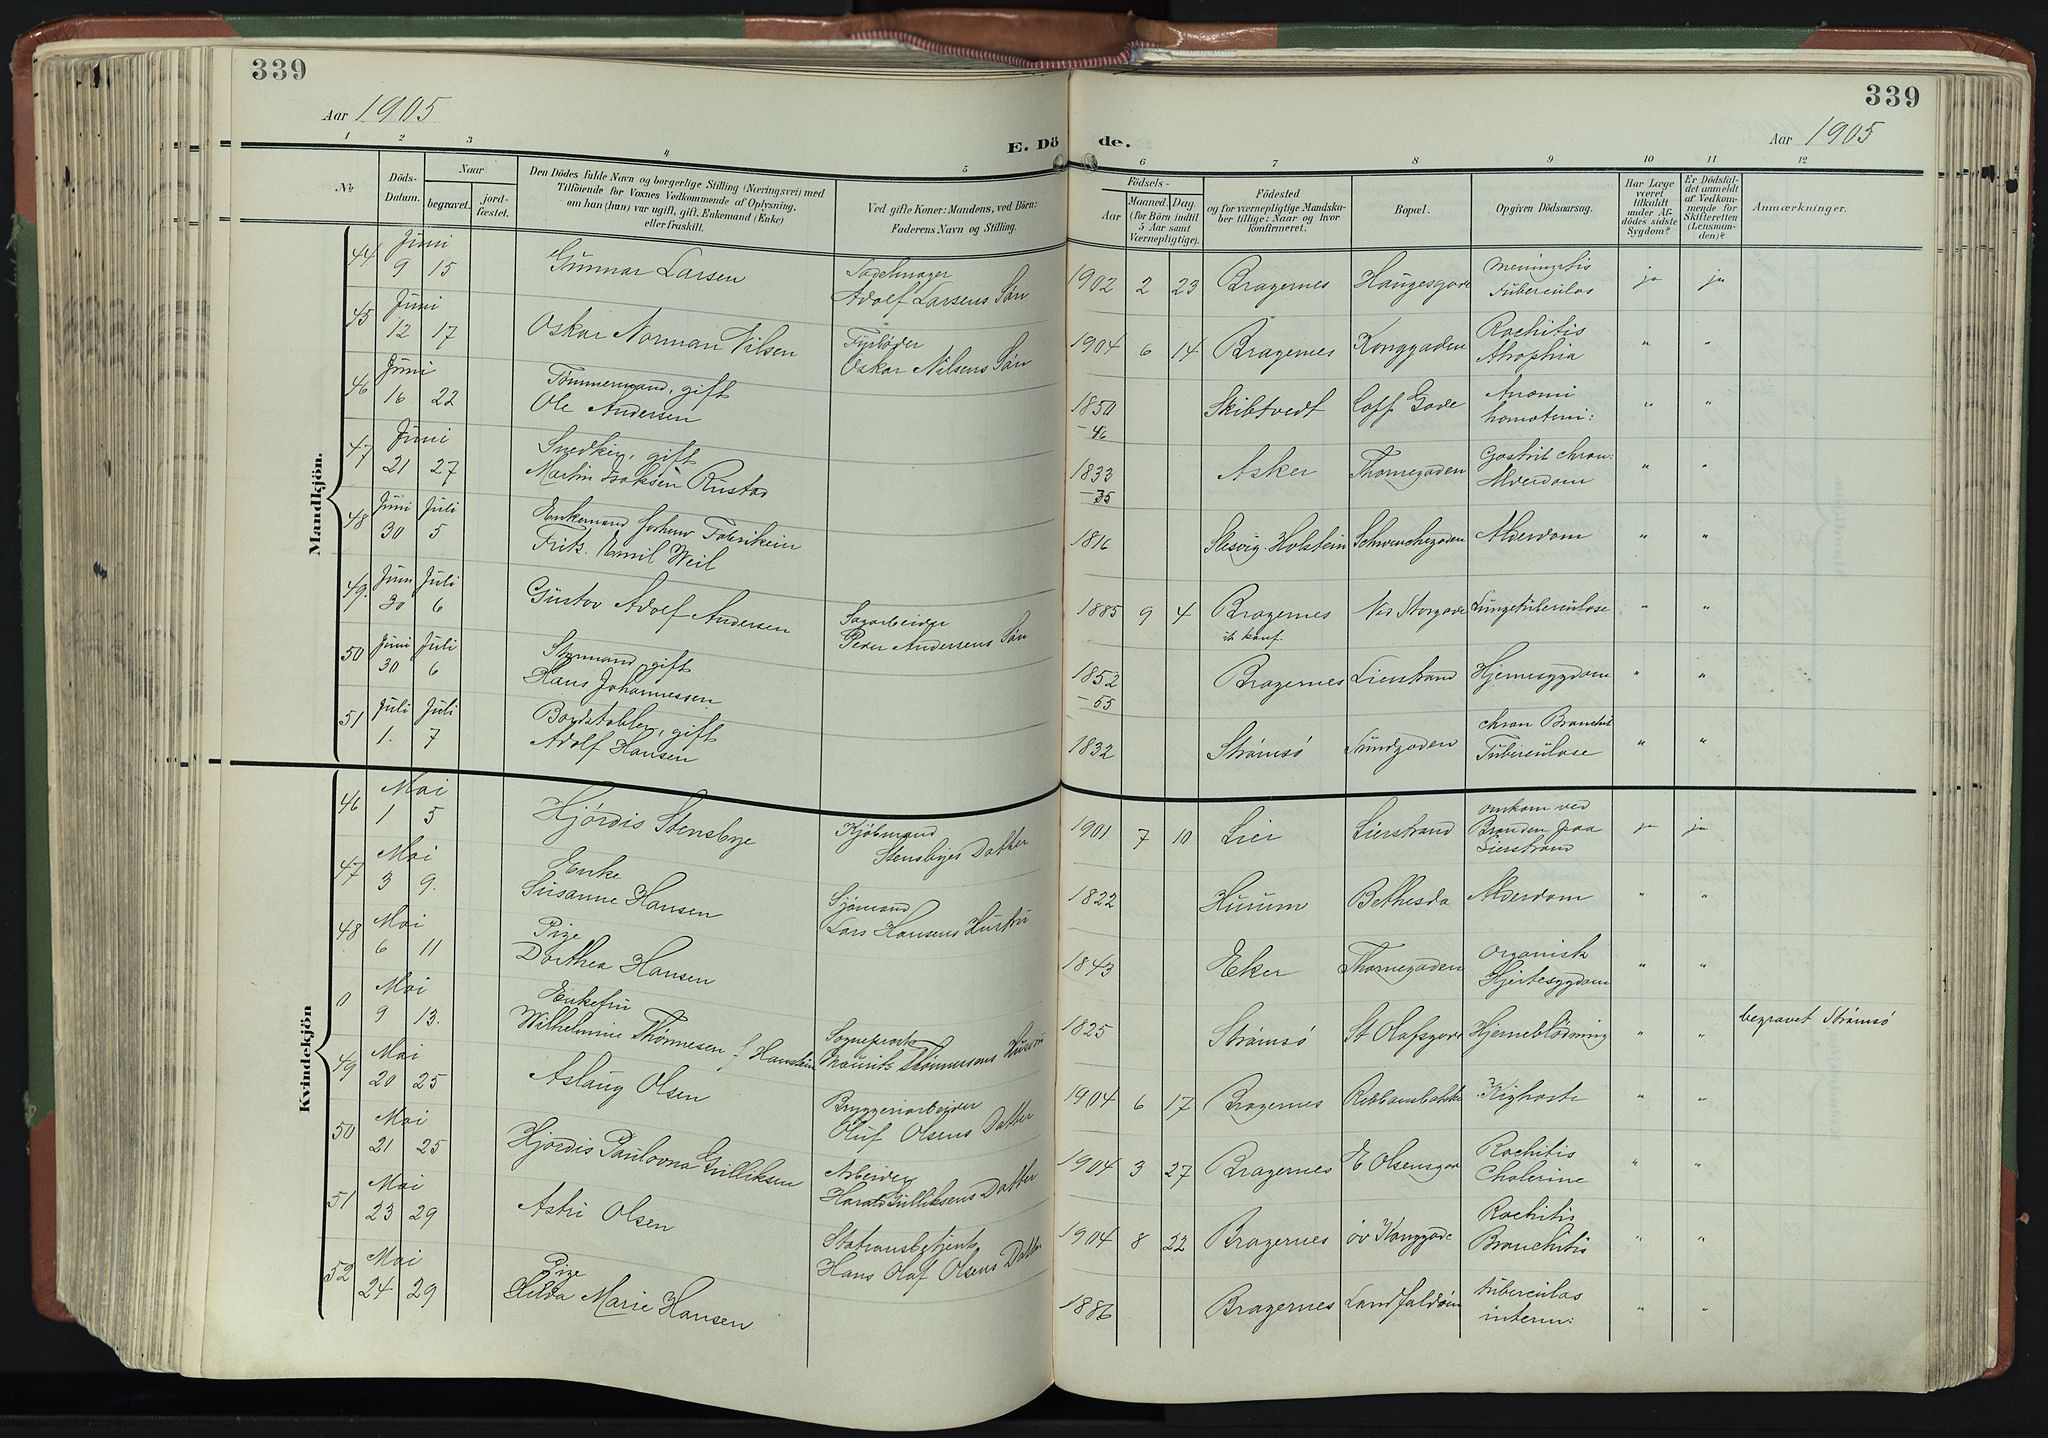 339
339
Aar 1905
E. Dö de.
Aar 1905
1 2 3 4 5 6 7 8 9 10 11 12
№
Döds-Datum.
Naar
begravet.
jord-fæstet.
Den Dödes fulde Navn og borgerlige Stilling (Næringsvei) med
Tilföiende for Voxnes Vedkommende af Oplysning,
om han (hun) var ugift, gift, Enkemand (Enke)
eller fraskilt.
Ved gifte Koner: Mandens, ved Börn:
Faderens Navn og Stilling.
Födsels-
Aar
Maaned.
Dag.
(for Börn indtil
5 Aar samt
Værnepligtige).
Födested
og for værnepligtige Mandska-
ber tillige: Naar og hvor
konfirmeret.
Bopæl.
Opgiven Dödsaarsag.
Har Læge
været
tilkaldt
under Af-
dödes sidste
Sygdom?
Er Dödsfal-
det anmeldt
af Vedkom-
mende for
Skifteretten
(Lensman-
den)?
Anmærkninger.
Mandkjön.
44 Juni 9 15 Gunnar Larsen Sadelmager
Adolf Larsens Søn 1902 2 23 Bragernes Haugesgade Meningitis
tuberculos ja ja
45 Juni 12 17 Oskar Norman Nilsen Fyrbøder
Oskar Nilsens Søn 1904 6 14 Bragernes Konggaden Rachitis
Atrophia " "
46 Juni 16 22 Tømmermand, gift
Ole Andersen 1850 Skibtvedt Gade " "
-46
47 Juni 21 27 Snedker, gift
Martin Isaksen Rustad 1833 Asker Thornegaden Gastrit chron:
Alderdom " "
-35
48 Juni 30 Juli 5 Enkemand, forhenv Fabrikeier
Fritz Emil Weil 1816 Slesvig-Holstein Schwenckegaden Alderdom " "
49. Juni 30 Juli 6 Gustav Adolf Andersen Sagarbeider
Peter Andersens Søn 1885 9 4 Bragernes Ned Storgade Lungetuberculose " "
konf.
50 Juni 30 Juli 6 Styrmand, gift
Hans Johannessen 1852 Bragernes Lierstrand Hjernesygdom " "
-55
51 Juli 1. Juli 7 Bordstabler, gift
Adolf Hansen 1832 Strømsø Sundgaden chron Bronchit
Tuberculose " "
Kvindekjön
46 Mai 1 5 Hjørdis Stensbye Kjøbmand
Stensbyes Datter 1901 7 10 Lier Lierstrand omkom ved
Branden paa
Lierstrand ja ja
47 Mai 3 9. Enke
Susanne Hansen Sjømand
Lars Hansens Hustru 1822 Hurum Bethesda Alderdom " "
48 Mai 6 11 Pige
Dorthea Hansen 1843 Eker Thornegaden Organisk
Hjertesygdom " "
0 Mai 9 13. Enkefru
Wilhelmine Thønnesen, f. Hanstein Sogneprest
Mauritz Thønnesens Hustru 1825 Strømsø St Olafsgade Hjerneblödning " " begravet Strømsø
49 Mai 20 25 Aslaug Olsen Bryggeriarbejder
Oluf Olsens Datter 1904 6 17 Bragernes Kighoste " "
50 Mai 21 25 Hjørdis Paulovna Gulliksen Arbeider
Harald Gulliksens Datter 1904 3 27 Bragernes E Olsensgade Rachitis
Cholerine " "
51 Mai 23 29 Astri Olsen Stationsbetjent
Hans Olaf Olsens Datter 1904 8 22 Bragernes øv Konggade Rachitis
Bronchitis " "
52 Mai 24 29 Pige
Hilda Marie Hansen 1886 Bragernes Landfaldøen tuberculos
intern: " "